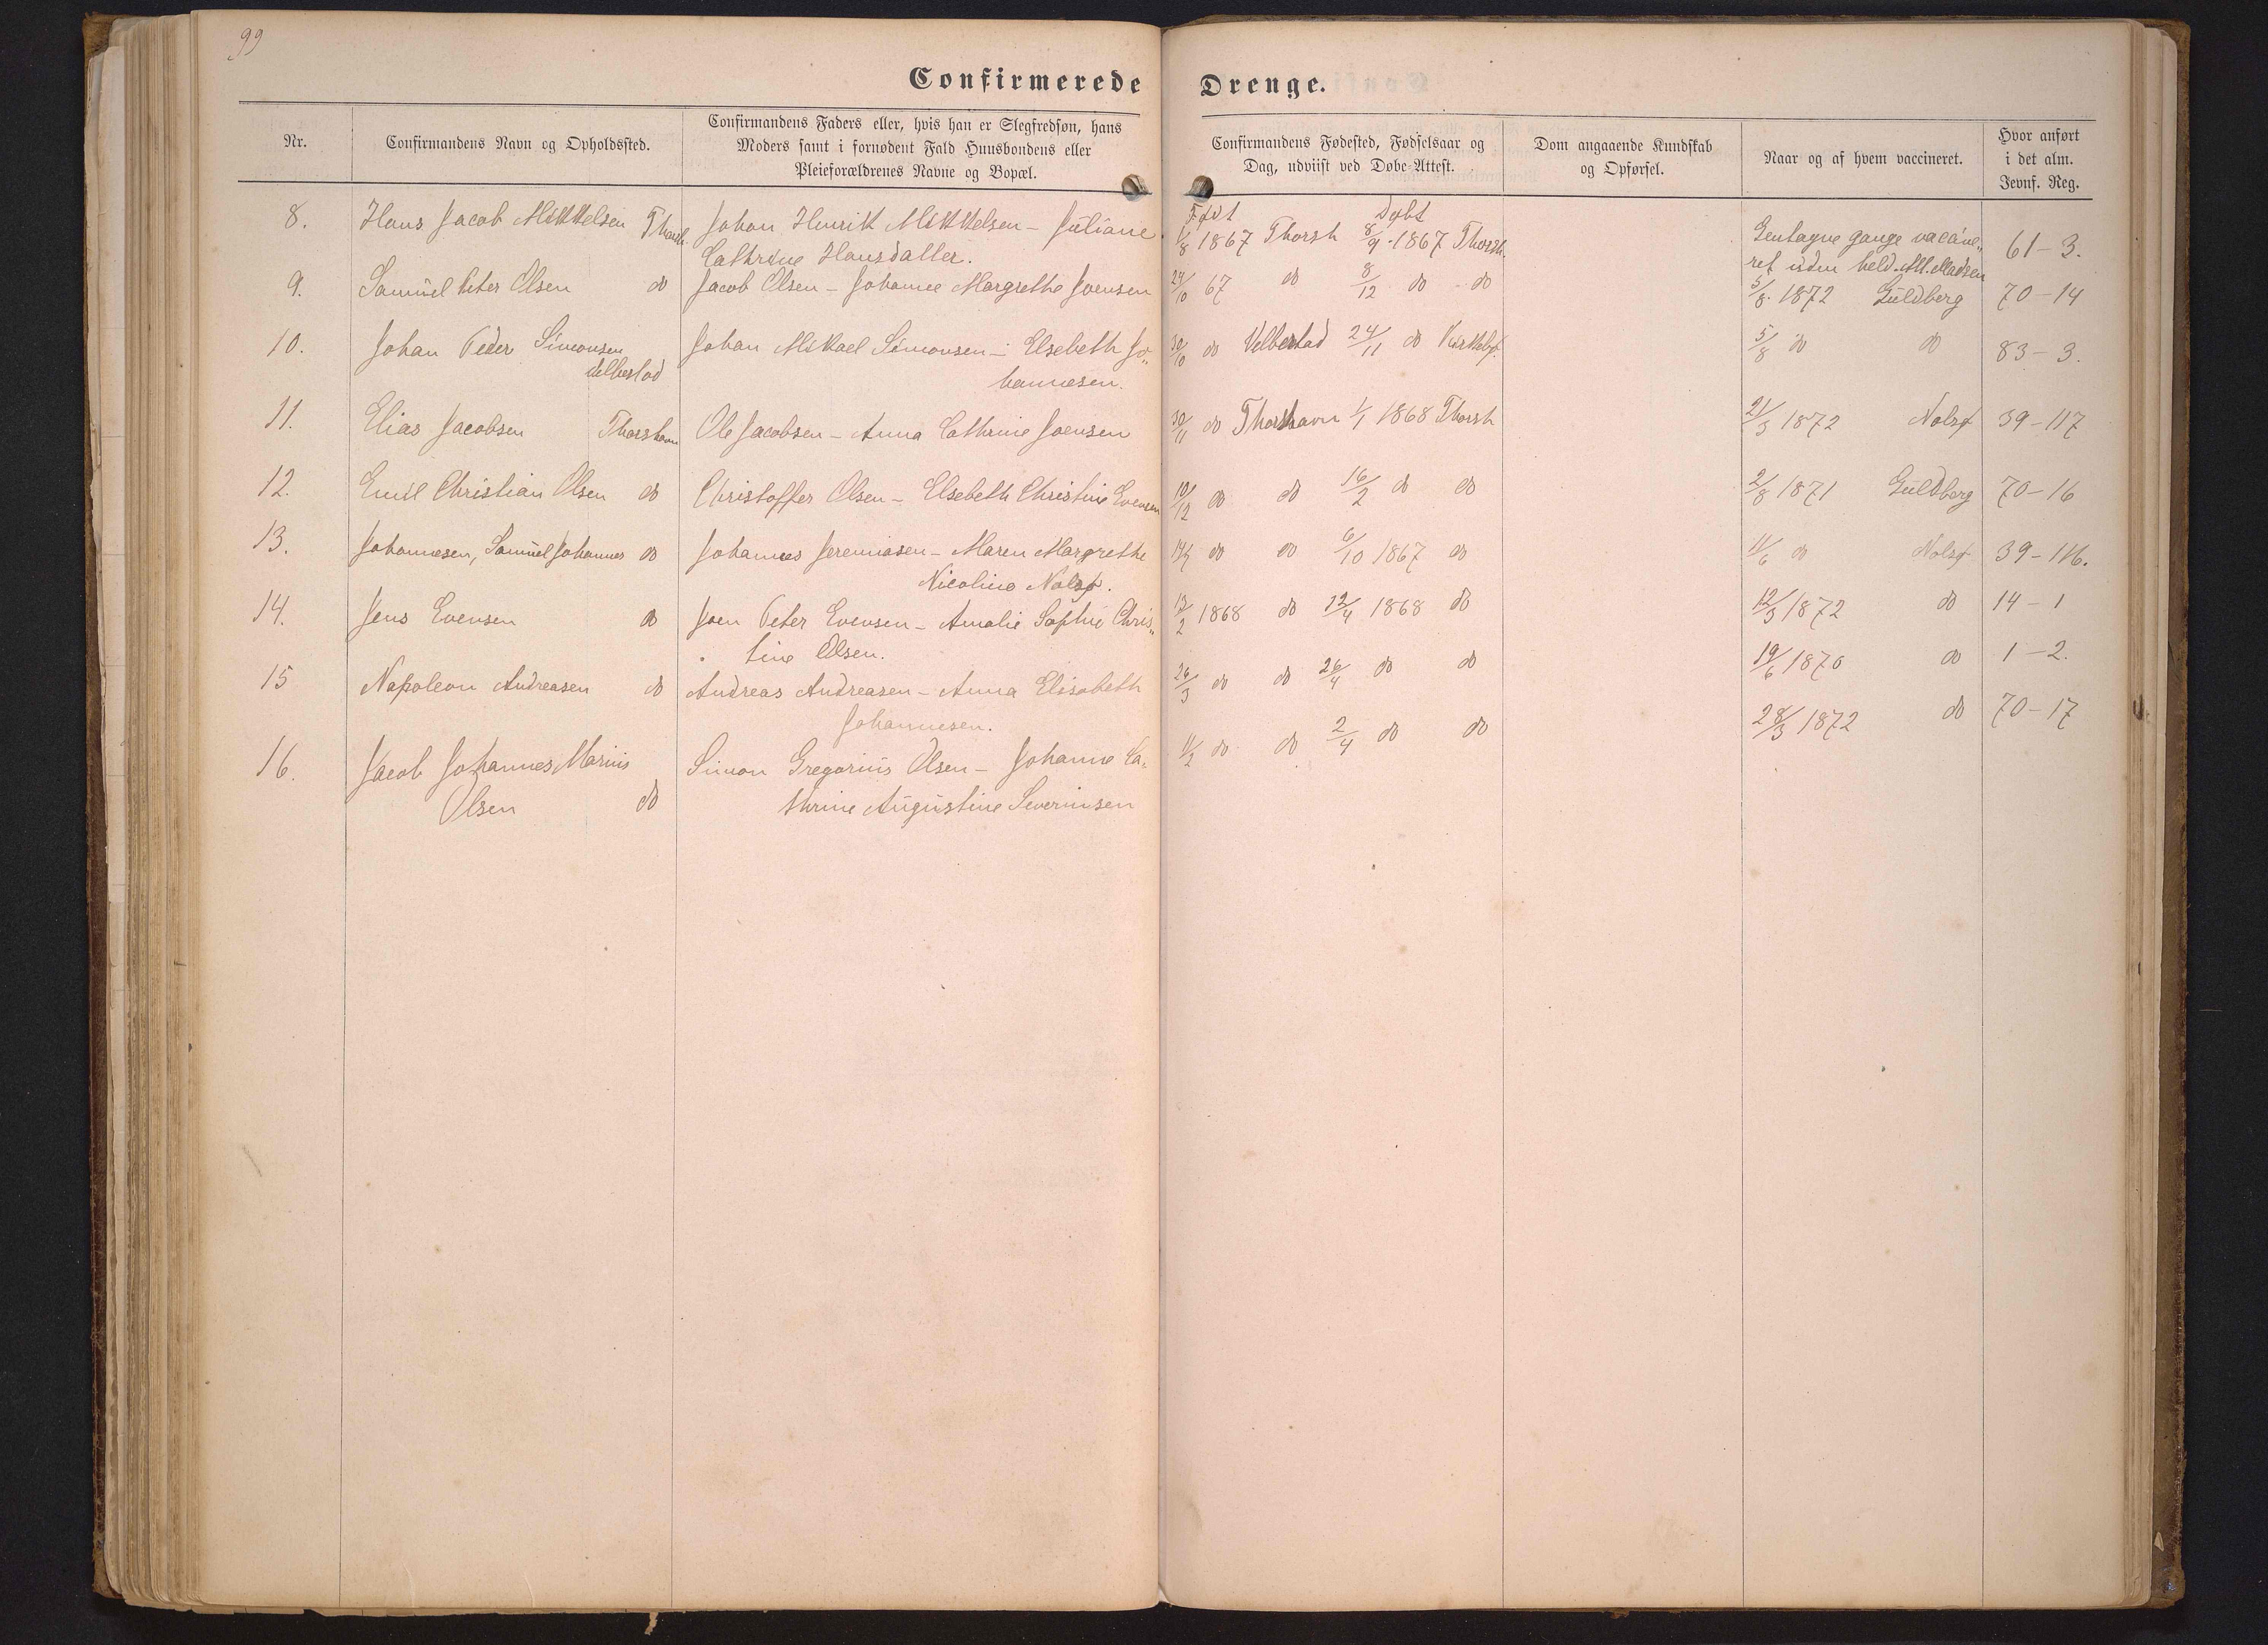 99
Confirmerede Drenge.
Nr.
Confirmandens Navn og Opholdssted.
Confirmandens Faders eller, hvis han er Slegfredsøn, hans
Moders samt i fornødent Fald Huusbondens eller
Pleieforældrenes Navne og Bopæl.
Confirmandens Fødested, Fødselsaar og
Dag, udviist ved Døbe-Attest.
Dom angaaende Kundskab
og Opførsel.
Naar og af hvem vaccineret.
Hvor anført
i det alm.
Jevnf. Reg.
Født Døbt
8. Hans Jacob Mikkelsen Thorsh. Johan Henrik Mikkelsen - Juliane 1/8 1867 Thorsh 8/9 1867 Thorsh. Gentagne gange vaccine„ 61-3.
Cathrine Hansdatter. ret uden held. M. Madsen
9. Samuel Peter Olsen do Jacob Olsen - Johanne Margrethe Joensen 24/10 67 do 8/12 do do 5/8 1872 Guldberg 70-14
10. Johan Peder Simonsen Johan Mikael Simonsen - Elsebeth Jo„ 30/10 do Velbestad 24/11 do Kirkebø 5/8 do do 83-3.
Velbestad hannesen.
11. Elias Jacobsen Thorshavn Ole Jacobsen - Anna Cathrine Joensen 30/11 do Thorshavn 1/1 1868 Thorsh 21/3 1872 Nolsø 39-117
12. Emil Christian Olsen do Christoffer Olsen - Elsebeth Christine Evensen 10/12 do do 16/2 do do 2/8 1871 Guldberg 70-16
13. Johannesen, Samuel Johannes do Johannes Jeremiasen - Maren Margrethe do do 6/10 1867 do 11/6 do Nolsø 39-116.
Nicoline Nolsø.
14. Jens Evensen do Joen Peter Evensen - Amalie Sophie Chris„ 1868 do 12/4 1868 do 12/3 1872 do 14-1
tine Olsen.
15 Napoleon Andreasen do Andreas Andreasen - Anna Elisabeth 26/3 do do 26/4 do do 19/6 1870 do 1-2.
Johannesen.
16. Jacob Johannes Marius Simon Gregorius Olsen - Johanne Ca„ 11/2 do do 2/4 do do 28/3 1872 do 70-17
Olsen do thrine Augustine Severinsen